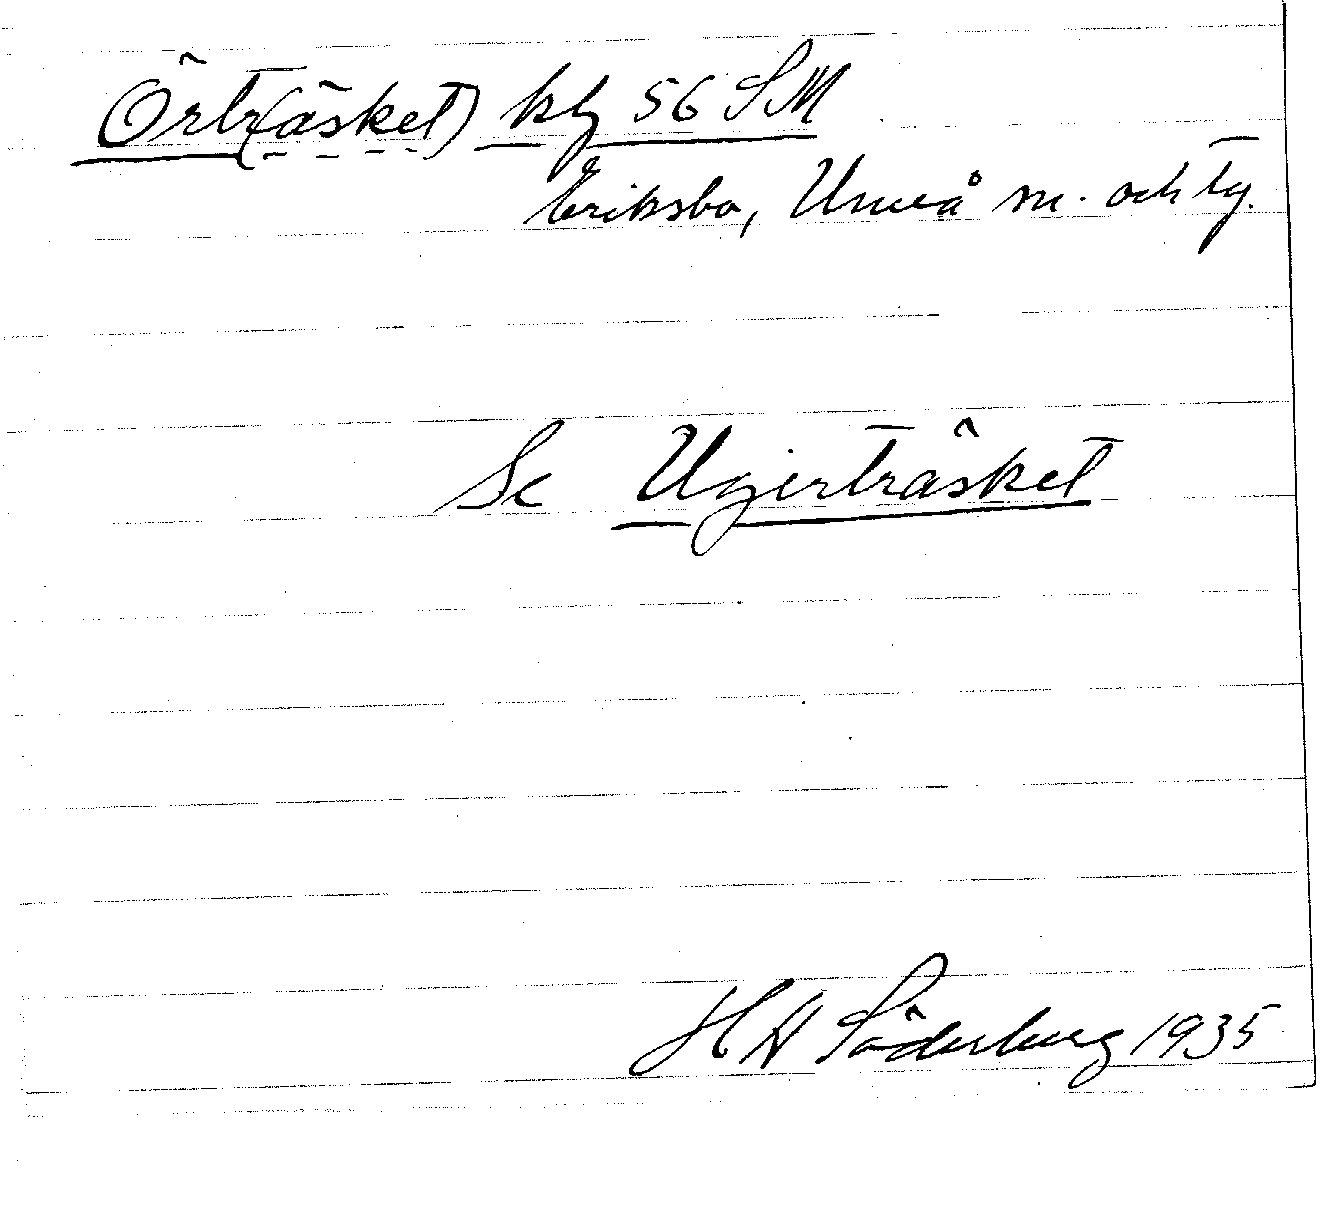 Örtr(äsket) kbl 56 SM
Eriksbo, Umeå sn. och tg.
Se Ugerträsket
H A Söderberg 1935